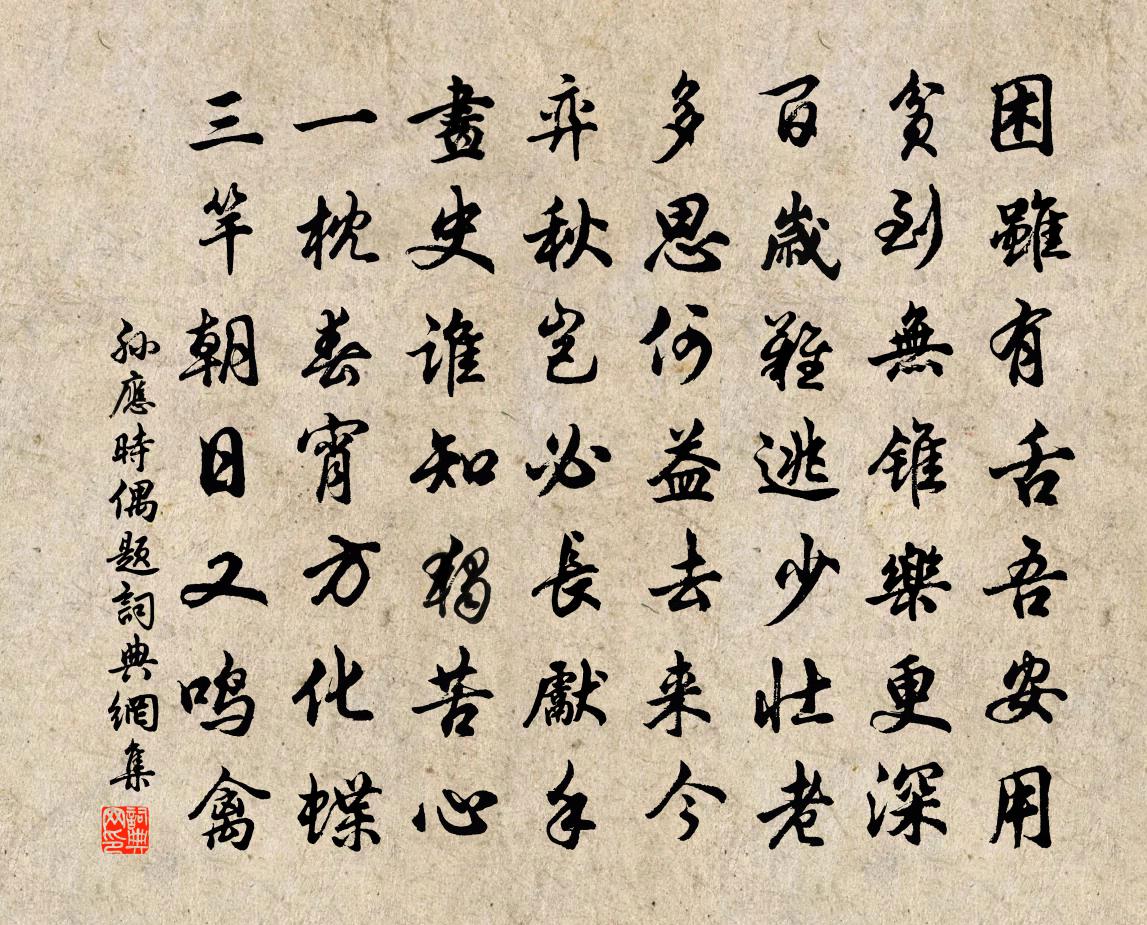 困雖有舌吾安用
貧到無錐樂更深
百歲難逃少壯老
多思何益去来今
弈秋豈必長獻手
畫史誰知獨苦心
一枕春宵方化蝶
三竿朝日又鳴禽
孫應時偶題詞典網集
詞典網印